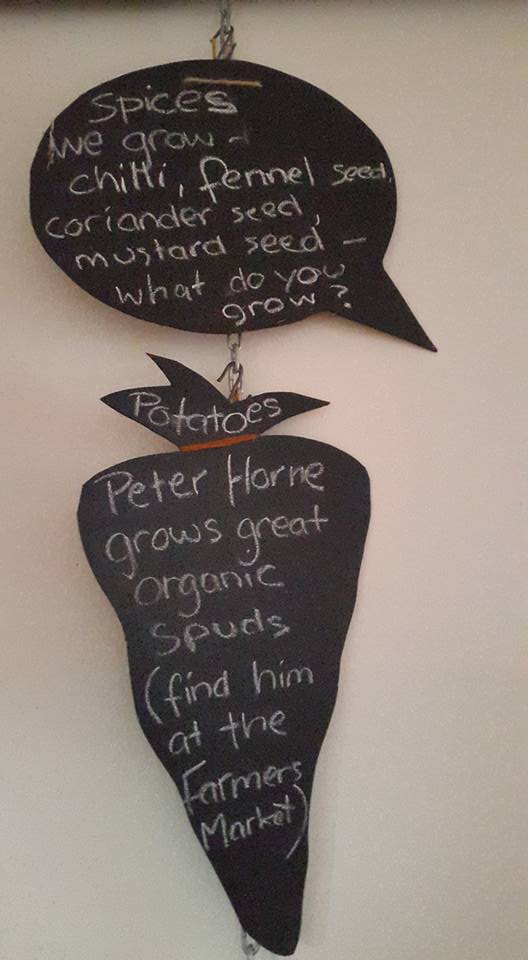 Spices
we grow -
chilli, fennel seed,
coriander seed,
mustard seed –
what do you
grow?
Potatoes
Peter Horne
grows great
organic
spuds
(find him
at the
Farmers
Market)